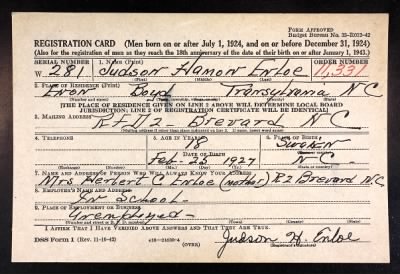 FORM APPROVED
Budget Bureau No. 33-R012-42
REGISTRATION CARD (Men born on or after July 1, 1924, and on or before December 31, 1924)
(Also for the registration of men as they reach the 18th anniversary of the date of their birth on or after January 1, 1943.)
SERIAL NUMBER 1. NAME (Print) ORDER NUMBER
W 281 Judson Hamon Enloe 11,331
2. PLACE OF RESIDENCE (Print)
Enon Boyd Transylvania N C
[THE PLACE OF RESIDENCE GIVEN ON LINE 2 ABOVE WILL DETERMINE LOCAL BOARD
JURISDICTION; LINE 2 OF REGISTRATION CERTIFICATE WILL BE IDENTICAL]
3. MAILING ADDRESS
R.F.D 2 Brevard N.C.
[Mailing address if other than place indicated on line 2. If same, insert word same]
4. TELEPHONE 5. AGE IN YEARS 6. PLACE OF BIRTH
18
DATE OF BIRTH
Feb - 25 1927 N-C-
(Exchange) (Number) (Mo.) (Day) (Yr.) (State or country)
7. NAME AND ADDRESS OF PERSON WHO WILL ALWAYS KNOW YOUR ADDRESS
Mrs Herbert C Enloe (mother) R2 Brevard N.C
8. EMPLOYER'S NAME AND ADDRESS
In School-
9. PLACE OF EMPLOYMENT OR BUSINESS
Unemployed-
(Number and street or R. F. D. number) (Town) (County) (State)
I AFFIRM THAT I HAVE VERIFIED ABOVE ANSWERS AND THAT THEY ARE TRUE.
DSS Form 1 (Rev. 11-16-42) (OVER) Judson H. Enloe
(Registrant's signature)